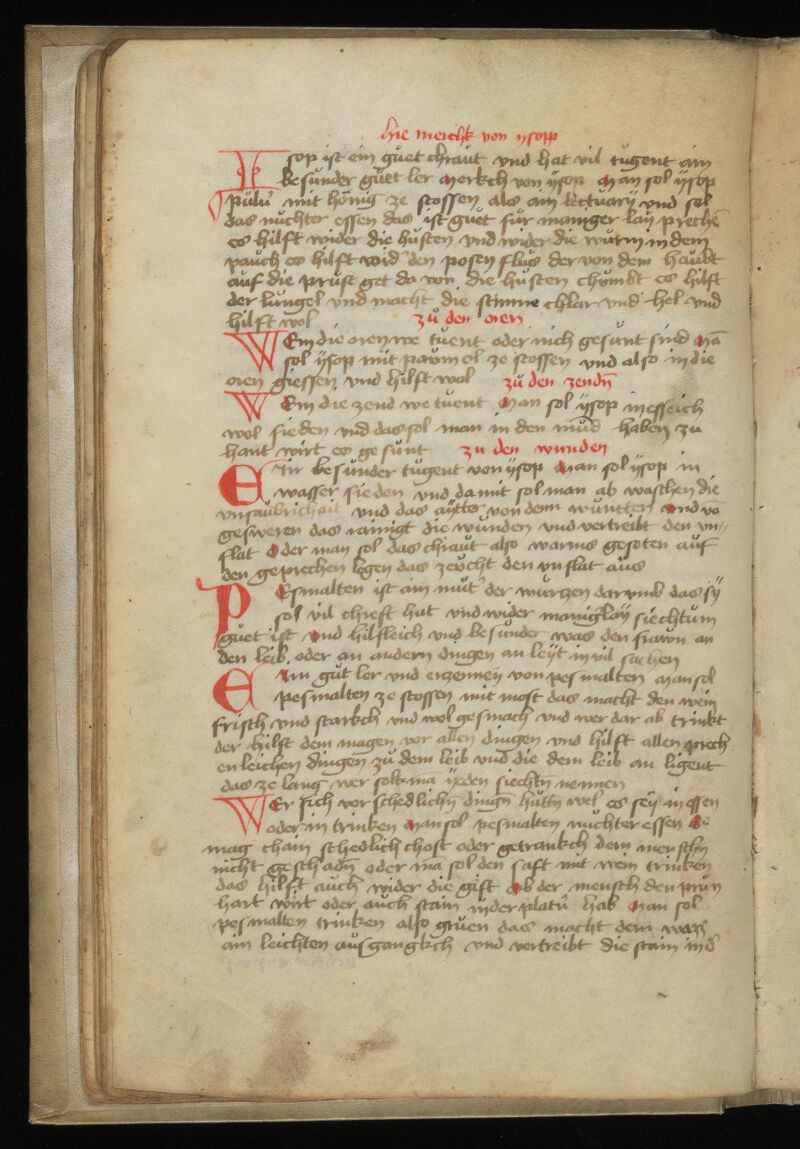 hie merchk von ysopp
Isop ist ein guet chraut vnd hat vil tugent ain
besunder guet ler Merkch von ysop Man sol ysop
puluͤ mit honig ze stossen als ain lectuarÿ vnd sol
das nuchter essen das ist guet fur maniger lay prechē
es hilft wider die husten vnd wider die wurm in dem
pauch es hilft wid̾ den posen flus der von dem haubt
auf die prust get da von die husten chumbt es hilft
der lungel vnd macht die stimme chlar vnd hel vnd
hilft wol zu den oren
Wem die oren we tuent oder nich gesunt sind Mā
sol ysop mit paum ol ze stossen vnd also in die
oren giessen vnd hilft wol zu den zendn̄
Wem die zend we tuent Man sol ysop in esseich
wol sieden vnd das sol man in den mud haben zu
hant wirt es gesunt zu den wunden
Ein besunder tugent von ysop Man sol ysop in
wasser sieden vnd da mit sol man ab waschen die
vnsaubrichait vnd das aytter von dem wuntten vnd vō
gesweren das rainigt die wunden vnd vertreibt den vn//
flat Oder man sol das chraut also warms gesoten auf
den geprechen legen das zeucht den vnflat aus
Pesmalten ist ain mut̾ der wurzen darumb das sÿ
sol vil chreft hat vnd wider maniglay siechtum
guet ist vnd hilfleich vnd besunder was den frawn an
den leib oder an andern dingen an leyt in vil sachen
Ein gut ler vnd erzenney von pesmalten Man sol
pesmalten ze stossen mit most das macht den wein
frisch vnd starkch vnd wol gesmach vnd wer dar ab trinkt
der hilft dem magen vor allen dingen vnd hilft allen prech
enleichen dingen zu dem leib vnd die dem leib an ligent
das ze lang wer solt mā yeden siechtn nennen
Wer sich vor schedlichn dingn hutn wel es sey in essen
oder in trinken Man sol pesmalten nuchter essen So
mag chain schedlich chost oder getrankch dem menschn
nicht geschadn̄ oder mā sol den saft mit wein trinken
das hilft auch wider die gift Ob der mensch den prun
hart wirt oder auch stain in der platn̄ hab Man sol
pesmalten trinken also gruen das macht dem wazz̾
ain leichten ausgangkch vnd vertreibt die stain in d̾